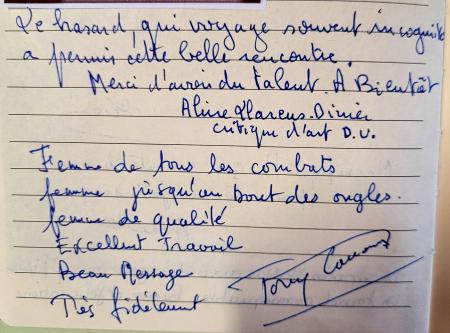 Le hasard, qui voyage souvent incognito
a permis cette belle rencontre.
Merci d'avoir du talent. A Bientôt
Aline
critique d'art D.U.
Femme de tous les combats
femme jusqu'au bout des ongles.
femme de qualité
Excellent Travail
Beau Message
Très fidèlement
Tony